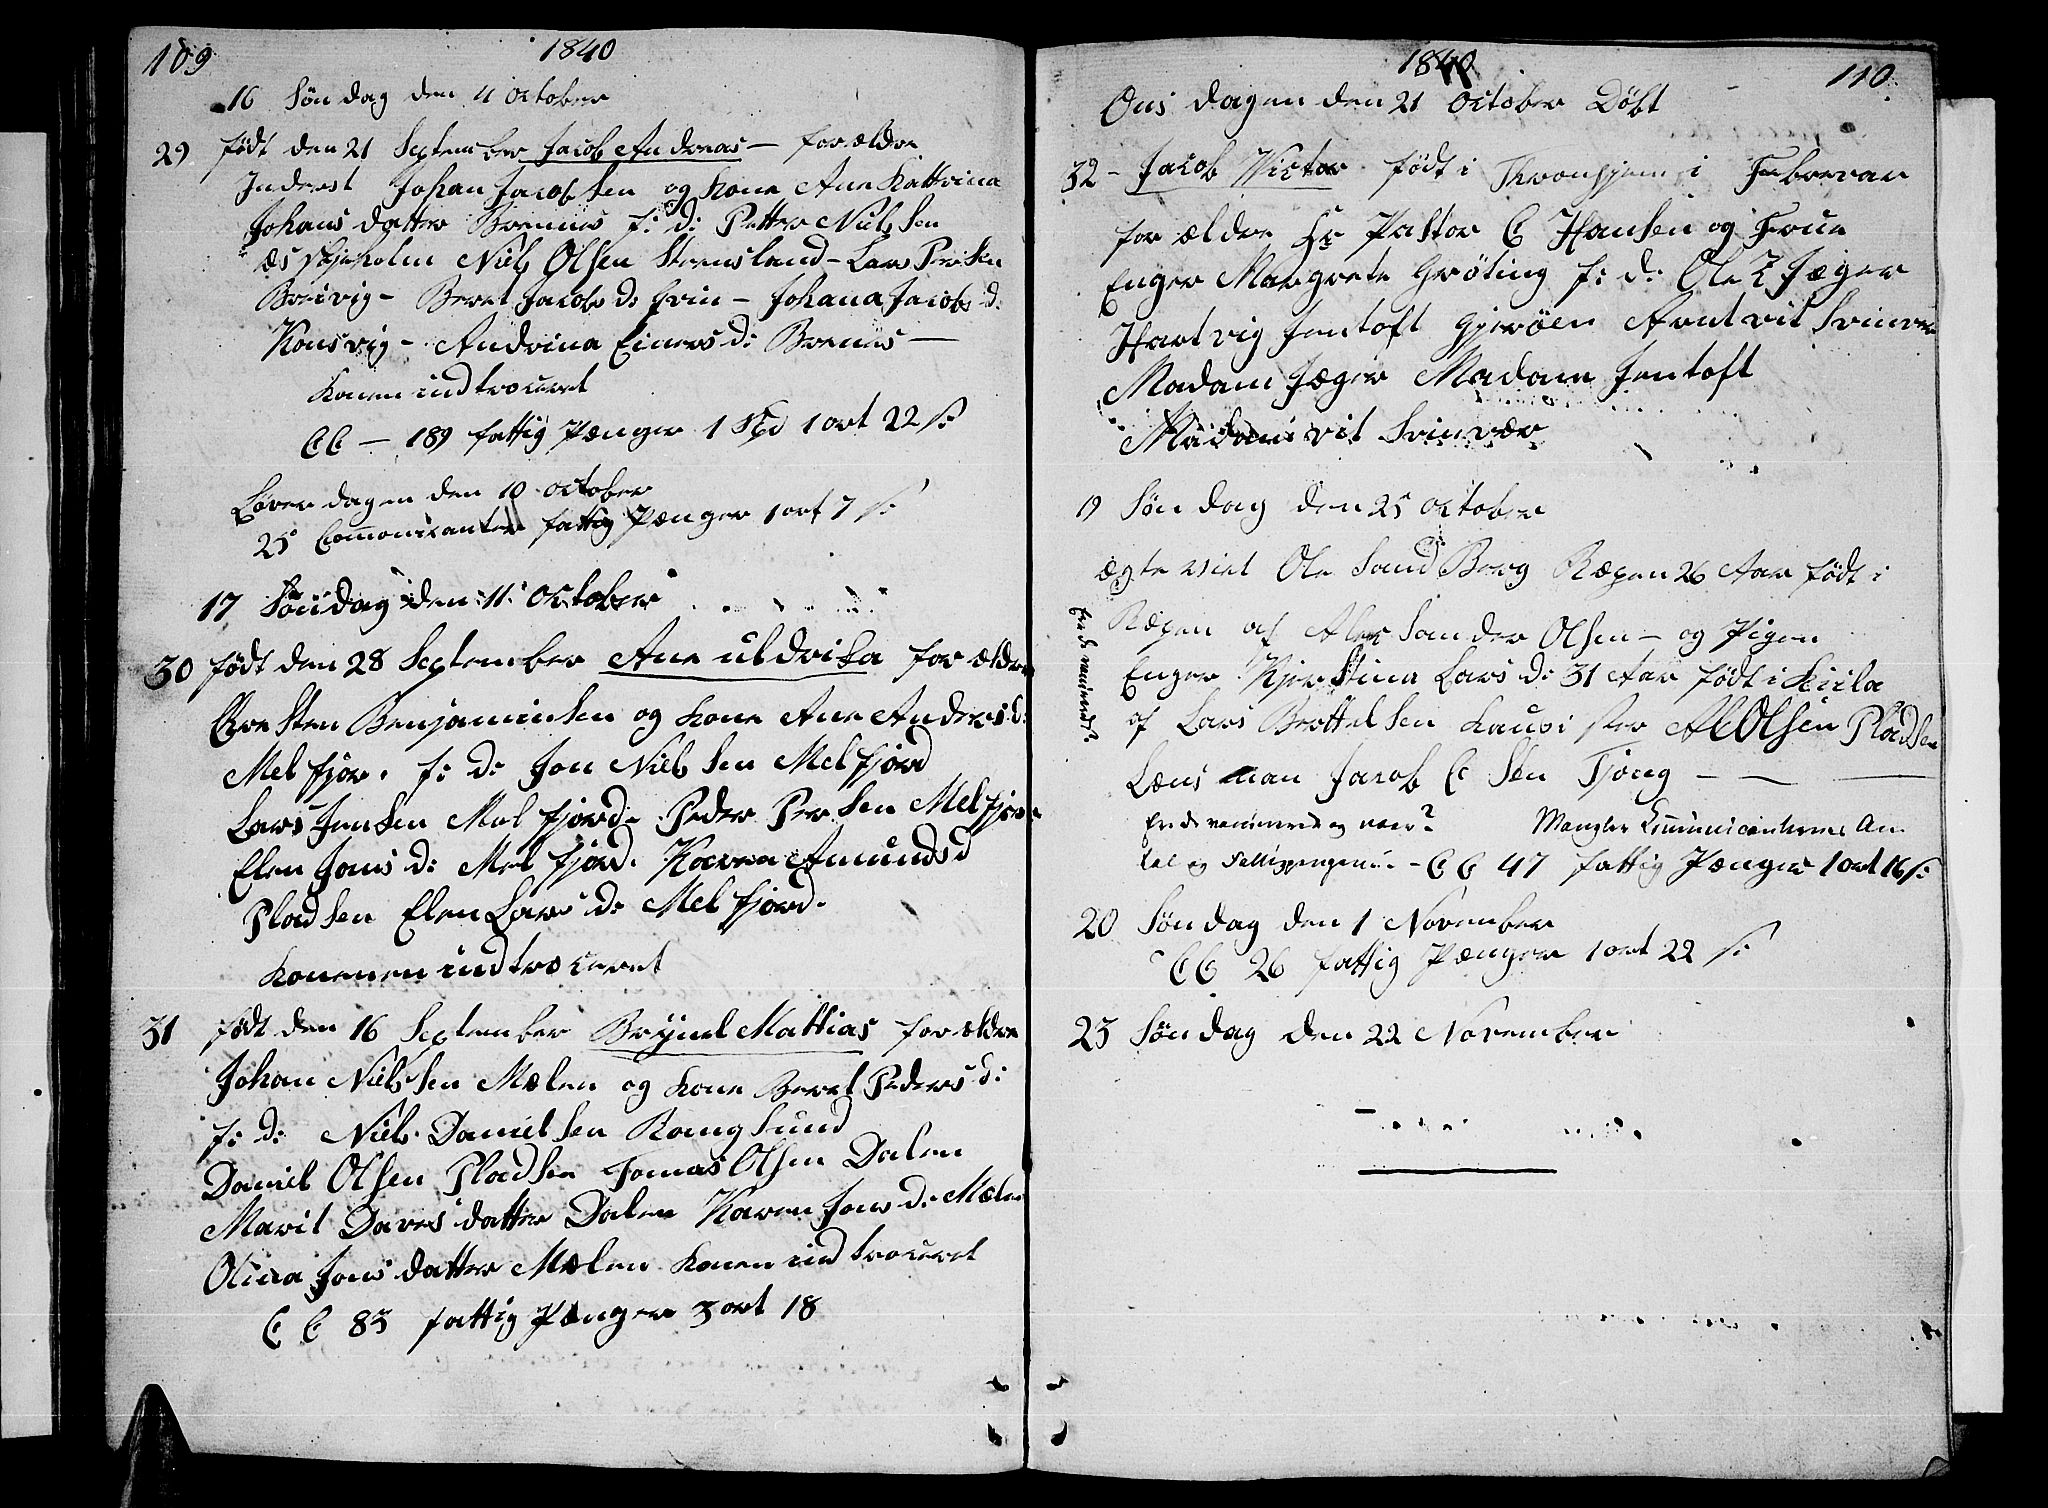 109
1840
16 Søndag den 4 October
29 født den 21 September Jacob Andreas - forældre
Inderst Johan Jacobsen og Kone Ane Kattrina
Johansdatter Brennes f: d: Petter Nielsen
Niels Olsen Stensland - Lars Persen
Breivig - Beret Jacobs d: Grin - Johana Jacobs d:
Konsvig - Andrina Einers d: Brenes -
Konen indtroceret
CC - 189 fattig Pænger 1 Spd 1 ort 22 s:
Løverdagen den 10 october
25 Commonicanter fattig Pænger 1 ort 7 s:
17 Søndag den 11 October
30 født den 28 September Ane uldrika forældre
Chresten Benjaminsen og Kone Ane Anders d:
Melfjor. f: d: Jon Nielsen Melfjord
Lars Jensen Melfjord. Peder Persen Melfjor
Elen Jons d: Melfjord. Karen Amunds d
Pladsen Elen Lars d: Melfjord.
Konenen indtroceret
31 født den 16 September Brynel Mattias forældre
Johan Nielsen Mælen og Kone Beret Peders d:
f: d: Niels Danielsen Rangsund
Daniel Olsen Pladsen Tomas Olsen Dalen
Marit Daresdatter Dalen Karen Jons d: Mælen
Olina Jonsdatter Mælen Konen indtroceret
CC 83 fattig Pænger 3 ort 18
1840
110
Onsdagen den 21 October Døbt
32 - Jacob Victor født i Thronhjem i Febrevar
forældre Hr Pastor C Hansen og Frue
Enger Margrete Grøting f: d: Ole Jæger
Hartvig Jentoft Gjerøen Arnt vit Svinvær
Madam Jæger Madam Jentoft
Madam vit Svinvær
19 Søndag den 25 October
ægteviet Ole Sandberg Ræpen 26 Aar født i
Ræpen af Alexsander Olsen - og Pigen
Enger Kjerstina Lars d: 31 Aar født i Kiila
af Lars Brettelsen Kausister A Olsen Pladsen
Lænsman Jacob C Sen Tjong -
Er de vacinerede og naar? Mangler Communicanternes An-
tal og Fattigpengene - CC 47 fattig Pænger 1 ort 16 s:
Er de vacinerede
20 Søndag den 1 November
CC 26 fattig Pænger 1 ort 22 s:
23 Søndag den 22 November